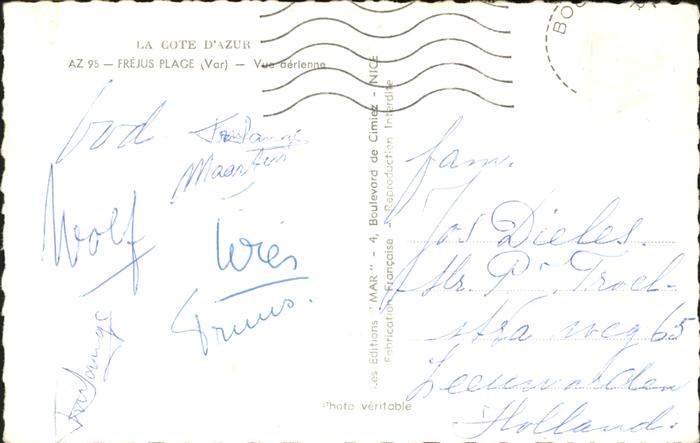 LA COTE D'AZUR
AZ 95 — FRÉJUS PLAGE (Var) — Vue aérienne
Maarten
Wolf
Les Editions "MAR" - 4, Boulevard de Cimiez - NICE
Fabrication Française - Reproduction Interdite
Photo véritable
BO
fam.
Jos Dieles.
Mr. Pr Troel-
stra weg 65
Leeuwarden
Holland.